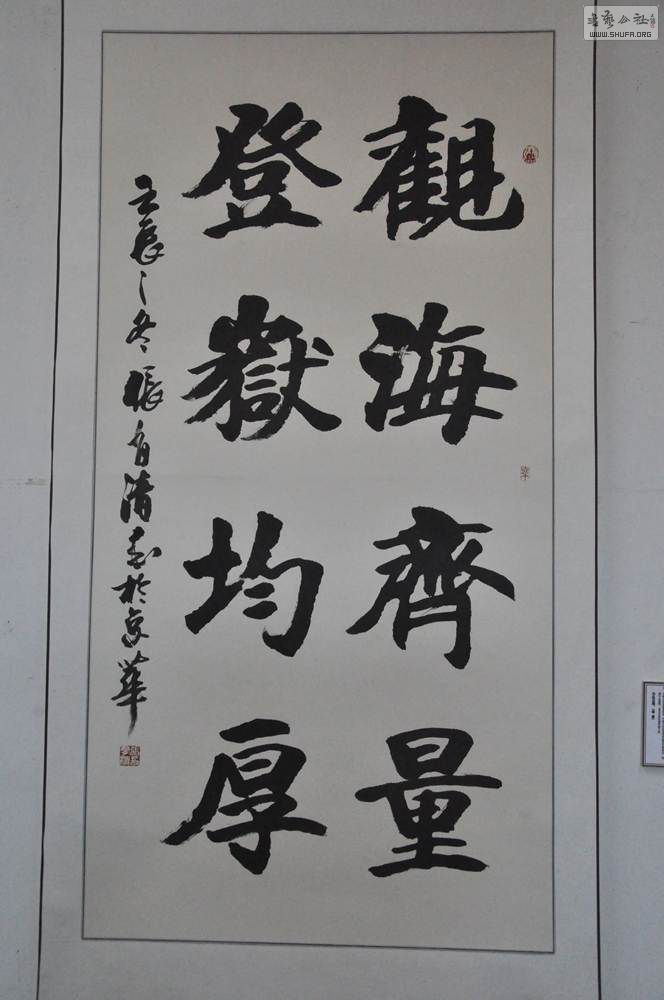 觀海齊量
登嶽均厚
壬辰之冬張有清書於京華
书艺公社
WWW.SHUFA.ORG